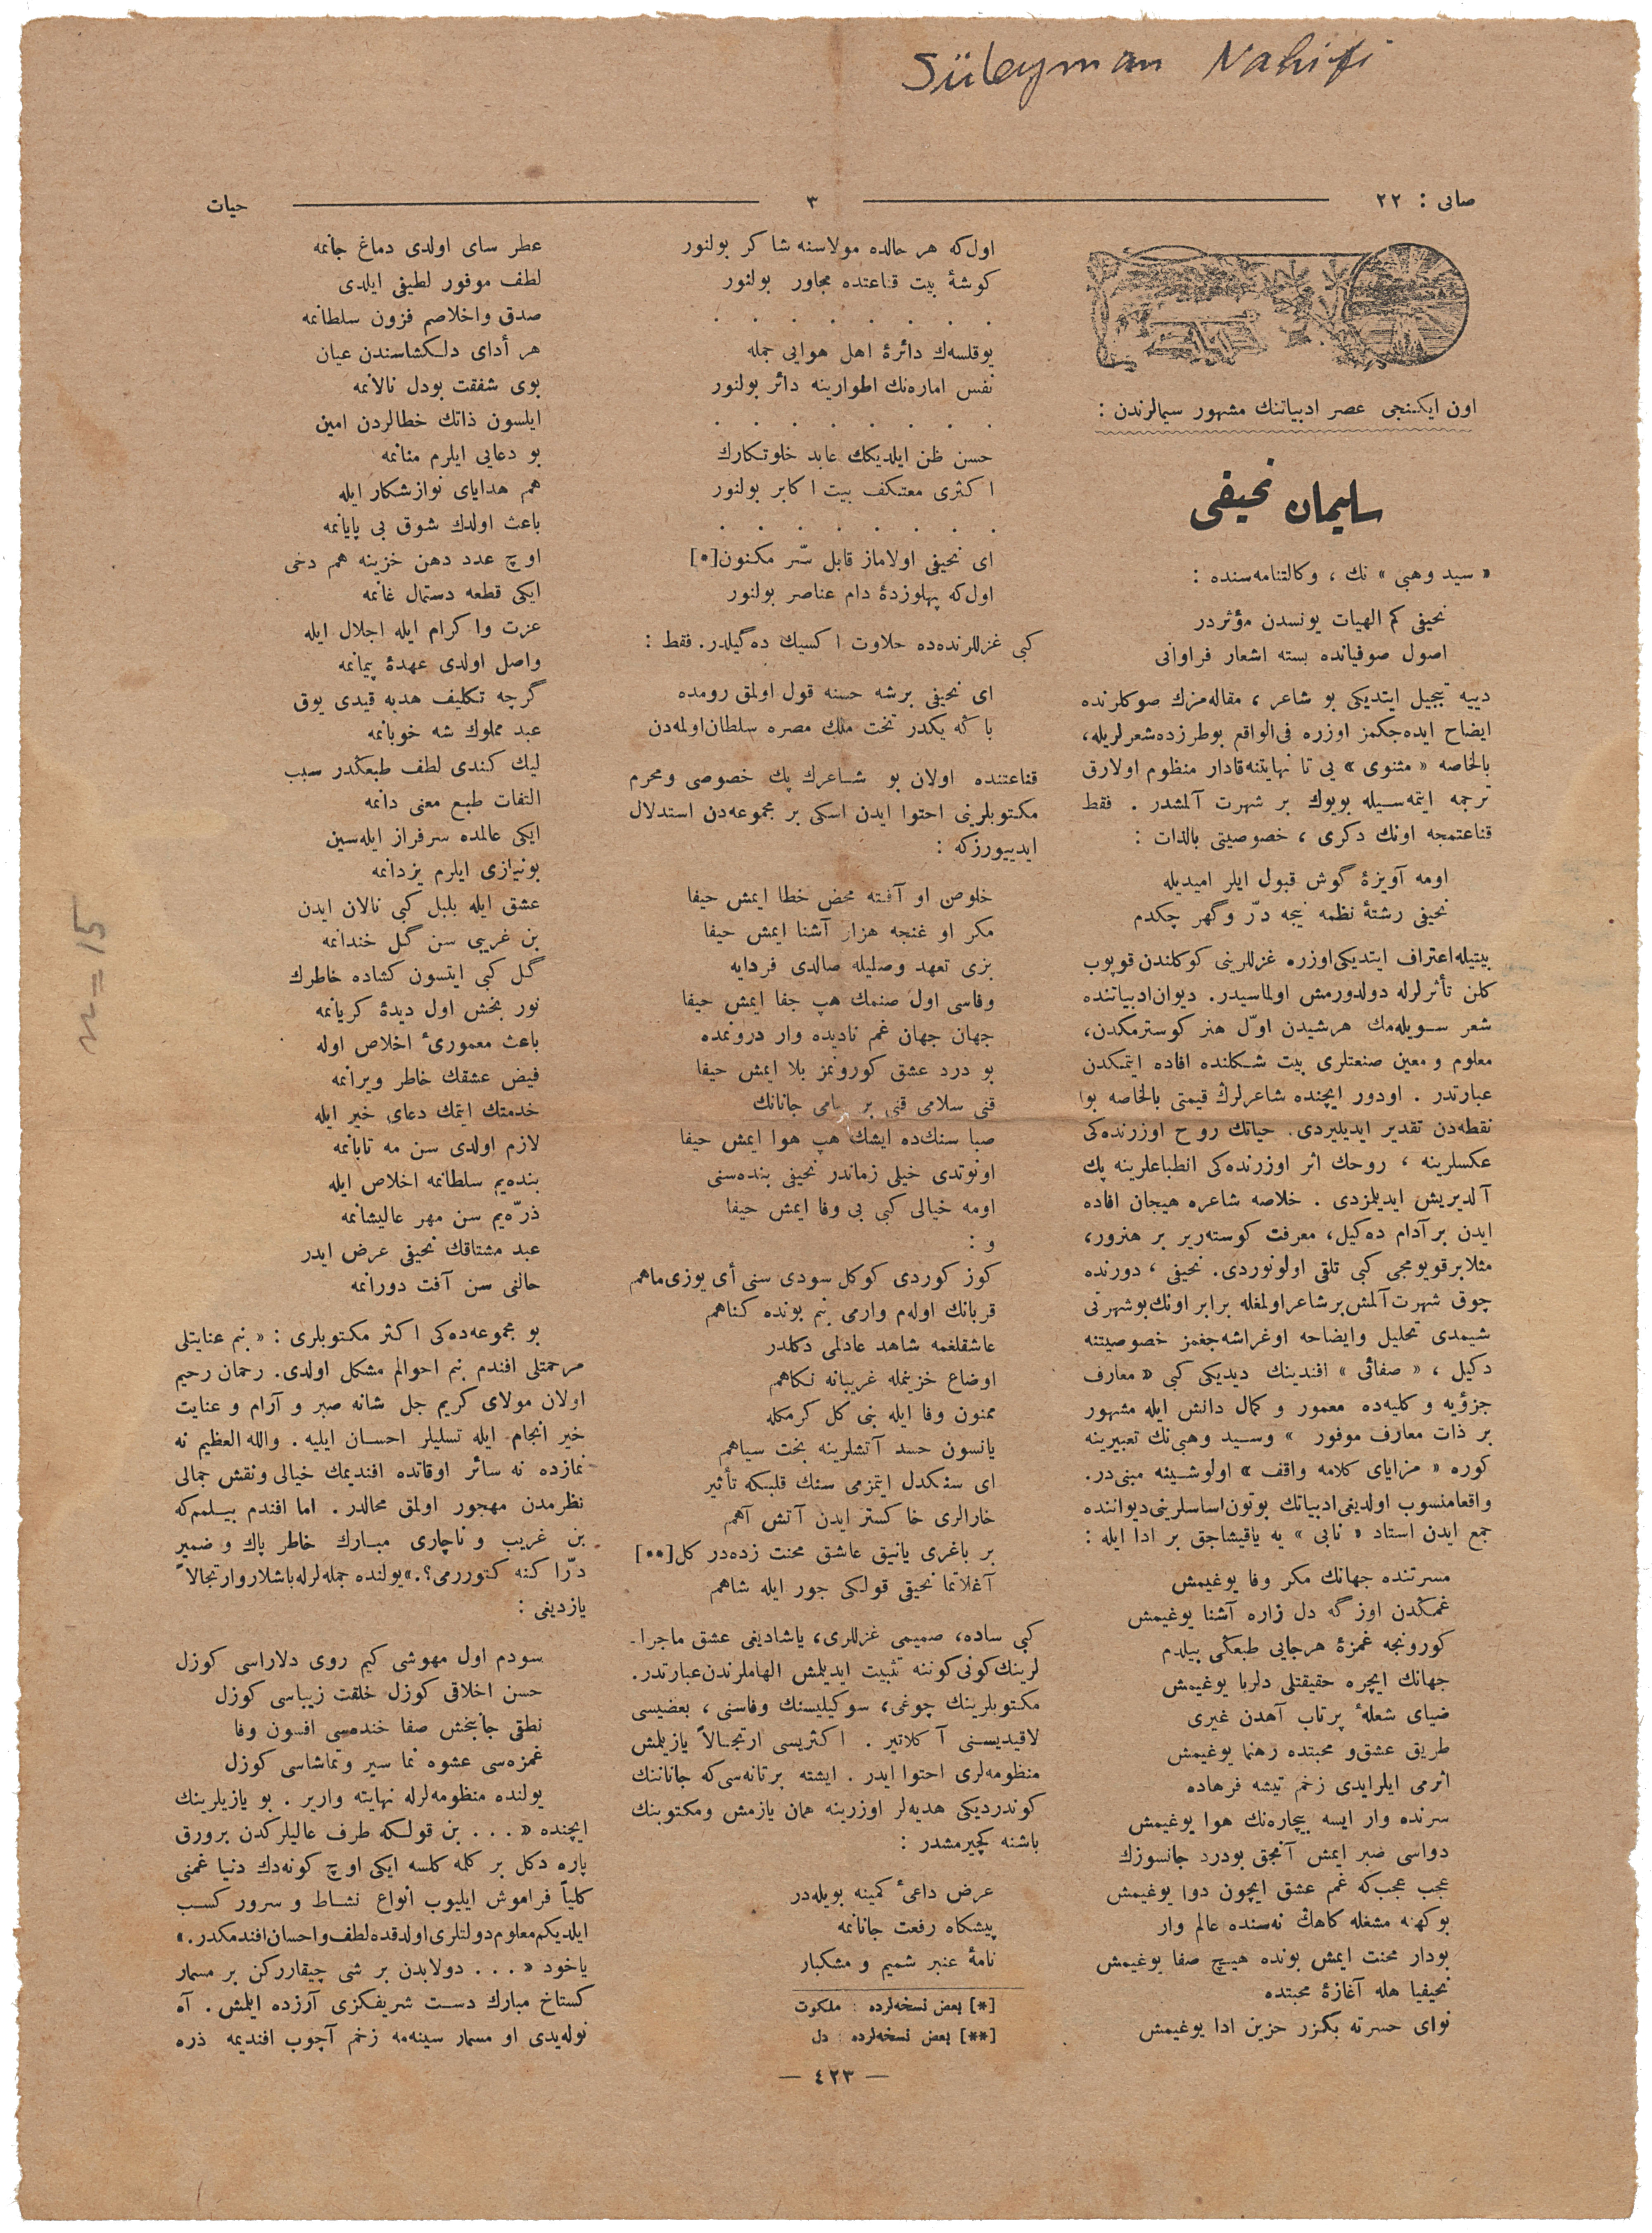 Süleyman Nahifi
صایی : ٢٢
٣
حیات
اون ایکنجی عصر ادبیاتنك مشهور سیمالرندن :
سلیمان نحیفی
« سید وهبی » نك ، وكالتنامه‌سنده :
نحیفی كم الهیات یونسدن مؤثردر
اصول صوفیانده بسته اشعار فراوانی
دییه تبجیل ایتدیکی بو شاعر ، مقاله‌مزك صوكلرنده
ایضاح ایده‌جکمز اوزره فی‌الواقع بوطرزده‌شعرلریله،
بالخاصه « مثنوی » یی تا نهایتنه‌قادار منظوم اولارق
ترجمه ایتمه‌سیله بویوك بر شهرت آلمشدر . فقط
قناعتمجه اونك دكری ، خصوصیتی بالذات :
اومه آویزهٔ گوش قبول ایلر امیدیله
نحیفی رشتهٔ نظمه نیجه درّ وگهر چكدم
بیتیله‌اعتراف ایتدیكی‌اوزره غزللرینی كوكلندن قوپوب
كلن تأثرلرله دولدورمش اولماسیدر. دیوان‌ادبیاتنده
شعر سویله‌مك هرشیدن اوّل هنر كوسترمكدن،
معلوم و معین صنعتلری بیت شكلنده افاده ایتمكدن
عبارتدر . اودور ایچنده شاعرلرك قیمتی بالخاصه بوا
نقطه‌دن تقدیر ایدیلیردی. حیاتك روح اوزرنده‌كی
عكسلرینه ، روحك اثر اوزرنده‌كی انطباعلرینه پك
آلدیریش ایدیلمزدی . خلاصه شاعره هیجان افاده
ایدن برآدام ده‌كیل، معرفت كوسته‌ریر بر هنرور،
مثلابرقویومجی كبی تلقی اولونوردی. نحیفی ، دورنده
چوق شهرت‌آلمش‌برشاعراولمغله برابر اونك‌بوشهرتی
شیمدی تحلیل وایضاحه اوغراشه‌جغمز خصوصیتنه
دكیل ، « صفائی » افندینك دیدیكی كبی « معارف
جزؤیه و كلیه‌ده معمور و كمال دانش ایله مشهور
بر ذات معارف موفور » وسید وهبی‌نك تعبیرینه
كوره « مزایای كلامه واقف » اولوشینه مبنی‌در.
واقعامنسوب اولدیغی‌ادبیاتك بوتون‌اساسلرینی‌دیواننده
جمع ایدن استاد « نابی » یه یاقیشاجق بر ادا ایله :
مسرتنده جهانك مكر وفا یوغیمش
غمكدن اوزگه دل زاره آشنا یوغیمش
كورونجه غمزهٔ هرجایی طبعكی بیلدم
جهانك ایچره حقیقتلی دلربا یوغیمش
ضیای شعلهٔ پرتاب آهدن غیری
طریق عشق‌و محبتده رهنما یوغیمش
اثرمی ایلرایدی زخم تیشه فرهاده
سرنده وار ایسه بیچاره‌نك هوا یوغیمش
دواسی صبر ایمش آنجق بودرد جانسوزك
عجب عجب‌كه غم عشق ایچون دوا یوغیمش
بوكهنه مشغله كاهڭ نه‌سنده عالم وار
بودار محنت ایمش بونده هیچ صفا یوغیمش
نحیفیا هله آغازهٔ محبتده
نوای حسرته بكزر حزین ادا یوغیمش
اول‌كه هر حالده مولاسنه شاكر بولنور
كوشهٔ بیت قناعتده مجاور بولنور
. . . . . . . .
یوقلسه‌ك دائرهٔ اهل هوایی جمله
نفس اماره‌نك اطوارینه دائر بولنور
. . . . . . . .
حسن ظن ایلدیكك عابد خلوتكارك
اكثری معتكف بیت اكابر بولنور
. . . . . . . .
ای نحیفی اولاماز قابل سّر مكنون[*]
اول‌كه پهلوزدهٔ دام عناصر بولنور
كبی غزللرنده‌ده حلاوت اكسیك ده‌گیلدر. فقط :
ای نحیفی برشه حسنه قول اولمق رومده
باكه یكدر تخت ملك مصره سلطان‌اولمه‌دن
قناعتنده اولان بو شاعرك پك خصوصی ومحرم
مكتوبلرینی احتوا ایدن اسكی بر مجموعه‌دن استدلال
ایدییورزكه :
خلوص او آفته محض خطا ایمش حیفا
مكر او غنچه هزار آشنا ایمش حیفا
بزی تعهد وصلیله صالدی فردایه
وفاسی اول صنمك هپ جفا ایمش حیفا
جهان جهان غم نادیده وار درونمده
بو درد عشق كورونمز بلا ایمش حیفا
قنی سلامی قنی بر پیامی جانانك
صبا سنك‌ده ایشك هپ هوا ایمش حیفا
اونوتدی خیلی زماندر نحیفی بنده‌سنی
اومه خیالی كبی بی وفا ایمش حیفا
و :
كوز كوردی كوكل سودی سنی أی یوزی‌ماهم
قربانك اوله‌م وارمی بنم بونده كناهم
عاشقلغمه شاهد عادلمی دكلدر
اوضاع حزینمله غریبانه نكاهم
ممنون وفا ایله بنی كل كرمكله
یانسون حسد آتشلرینه بخت سیاهم
ای سنكدل ایتمزمی سنك قلبكه تأثیر
خارالری خاكستر ایدن آتش آهم
بر باغری یانیق عاشق محنت زده‌در كل[**]
آغلاتما نحیفی قولكی جور ایله شاهم
كبی ساده، صمیمی غزللری، یاشادیغی عشق ماجرا-
لرینك‌كونی‌كوننه تثبیت ایدیلمش الهاملرندن‌عبارتدر.
مكتوبلرینك چوغی، سوكیلیسنك وفاسنی ، بعضیسی
لاقیدیسنی آكلاتیر . اكثریسی ارتجالاً یازیلمش
منظومه‌لری احتوا ایدر . ایشته برتانه‌سی‌كه جاناننك
كوندردیكی هدیه‌لر اوزرینه همان یازمش ومكتوبنك
باشنه كچیرمشدر :
عرض داعیٔ كمینه بویله‌در
پیشكاه رفعت جانانمه
نامهٔ عنبر شمیم و مشكبار
[*] بعض نسخه‌لرده : ملكوت
[**] بعض نسخه‌لرده : دل
عطر سای اولدی دماغ جانمه
لطف موفور لطیفی ایلدی
صدق واخلاصم فزون سلطانمه
هر أدای دلكشاسندن عیان
بوی شفقت بودل نالانمه
ایلسون ذاتك خطالردن امین
بو دعایی ایلرم منانمه
هم هدایای نوازشكار ایله
باعث اولدك شوق بی پایانمه
اوچ عدد دهن خزینه هم دخی
ایكی قطعه دستمال غانمه
عزت واكرام ایله اجلال ایله
واصل اولدی عهدهٔ پیمانمه
گرچه تكلیف هدیه قیدی یوق
عبد مملوك شه خوبانمه
لیك كندی لطف طبعكدر سبب
التفات طبع معنی دانمه
ایكی عالمده سرفراز ایله‌سین
بونیازی ایلرم یزدانمه
عشق ایله بلبل كبی نالان ایدن
بن غریبی سن گل خندانمه
گل كبی ایتسون كشاده خاطرك
نور بخش اول دیدهٔ كریانمه
باعث معموریٔ اخلاص اوله
فیض عشقك خاطر ویرانمه
خدمتك ایتمك دعای خیر ایله
لازم اولدی سن مه تابانمه
بنده‌یم سلطانمه اخلاص ایله
ذرّه‌یم سن مهر عالیشانمه
عبد مشتاقك نحیفی عرض ایدر
حالنی سن آفت دورانمه
بو مجموعه‌ده‌كی اكثر مكتوبلری : « بنم عنایتلی
مرحمتلی افندم بنم احوالم مشكل اولدی. رحمان رحیم
اولان مولای كریم جل شانه صبر و آرام و عنایت
خیر انجام ایله تسلیلر احسان ایلیه . والله العظیم نه
نمازده نه سائر اوقاتده افندیمك خیالی ونقش جمالی
نظرمدن مهجور اولمق محالدر. اما افندم بیلمم‌كه
بن غریب و ناچاری مبارك خاطر پاك و ضمیر
درّاكنه كتوررمی؟.»یولنده جمله‌لرله‌باشلاروارتجالاً
یازدیغی :
سودم اول مهوشی كیم روی دلاراسی كوزل
حسن اخلاقی كوزل خلقت زیباسی كوزل
نطقی جانبخش صفا خنده‌سی افسون وفا
غمزه‌سی عشوه نما سیر وتماشاسی كوزل
یولنده منظومه‌لرله نهایته واریر . بو یازیلرینك
ایچنده «... بن قولكه طرف عالیلركدن برورق
پاره دكل بر كله كلسه ایكی اوچ كونه‌دك دنیا غمنی
كلیاً فراموش ایلیوب أنواع نشاط و سرور كسب
ایلدیكم‌معلوم‌دولتلری‌اولدقده‌لطف‌واحسان‌افندمكدر.»
یاخود «... دولابدن بر شی چیقاررکن بر مسمار
كستاخ مبارك دست شریفكزی آزرده ایلمش. آه
نوله‌یدی او مسمار سینه‌مه زخم آچوب افندیمه ذره
— ٤٢٣ —